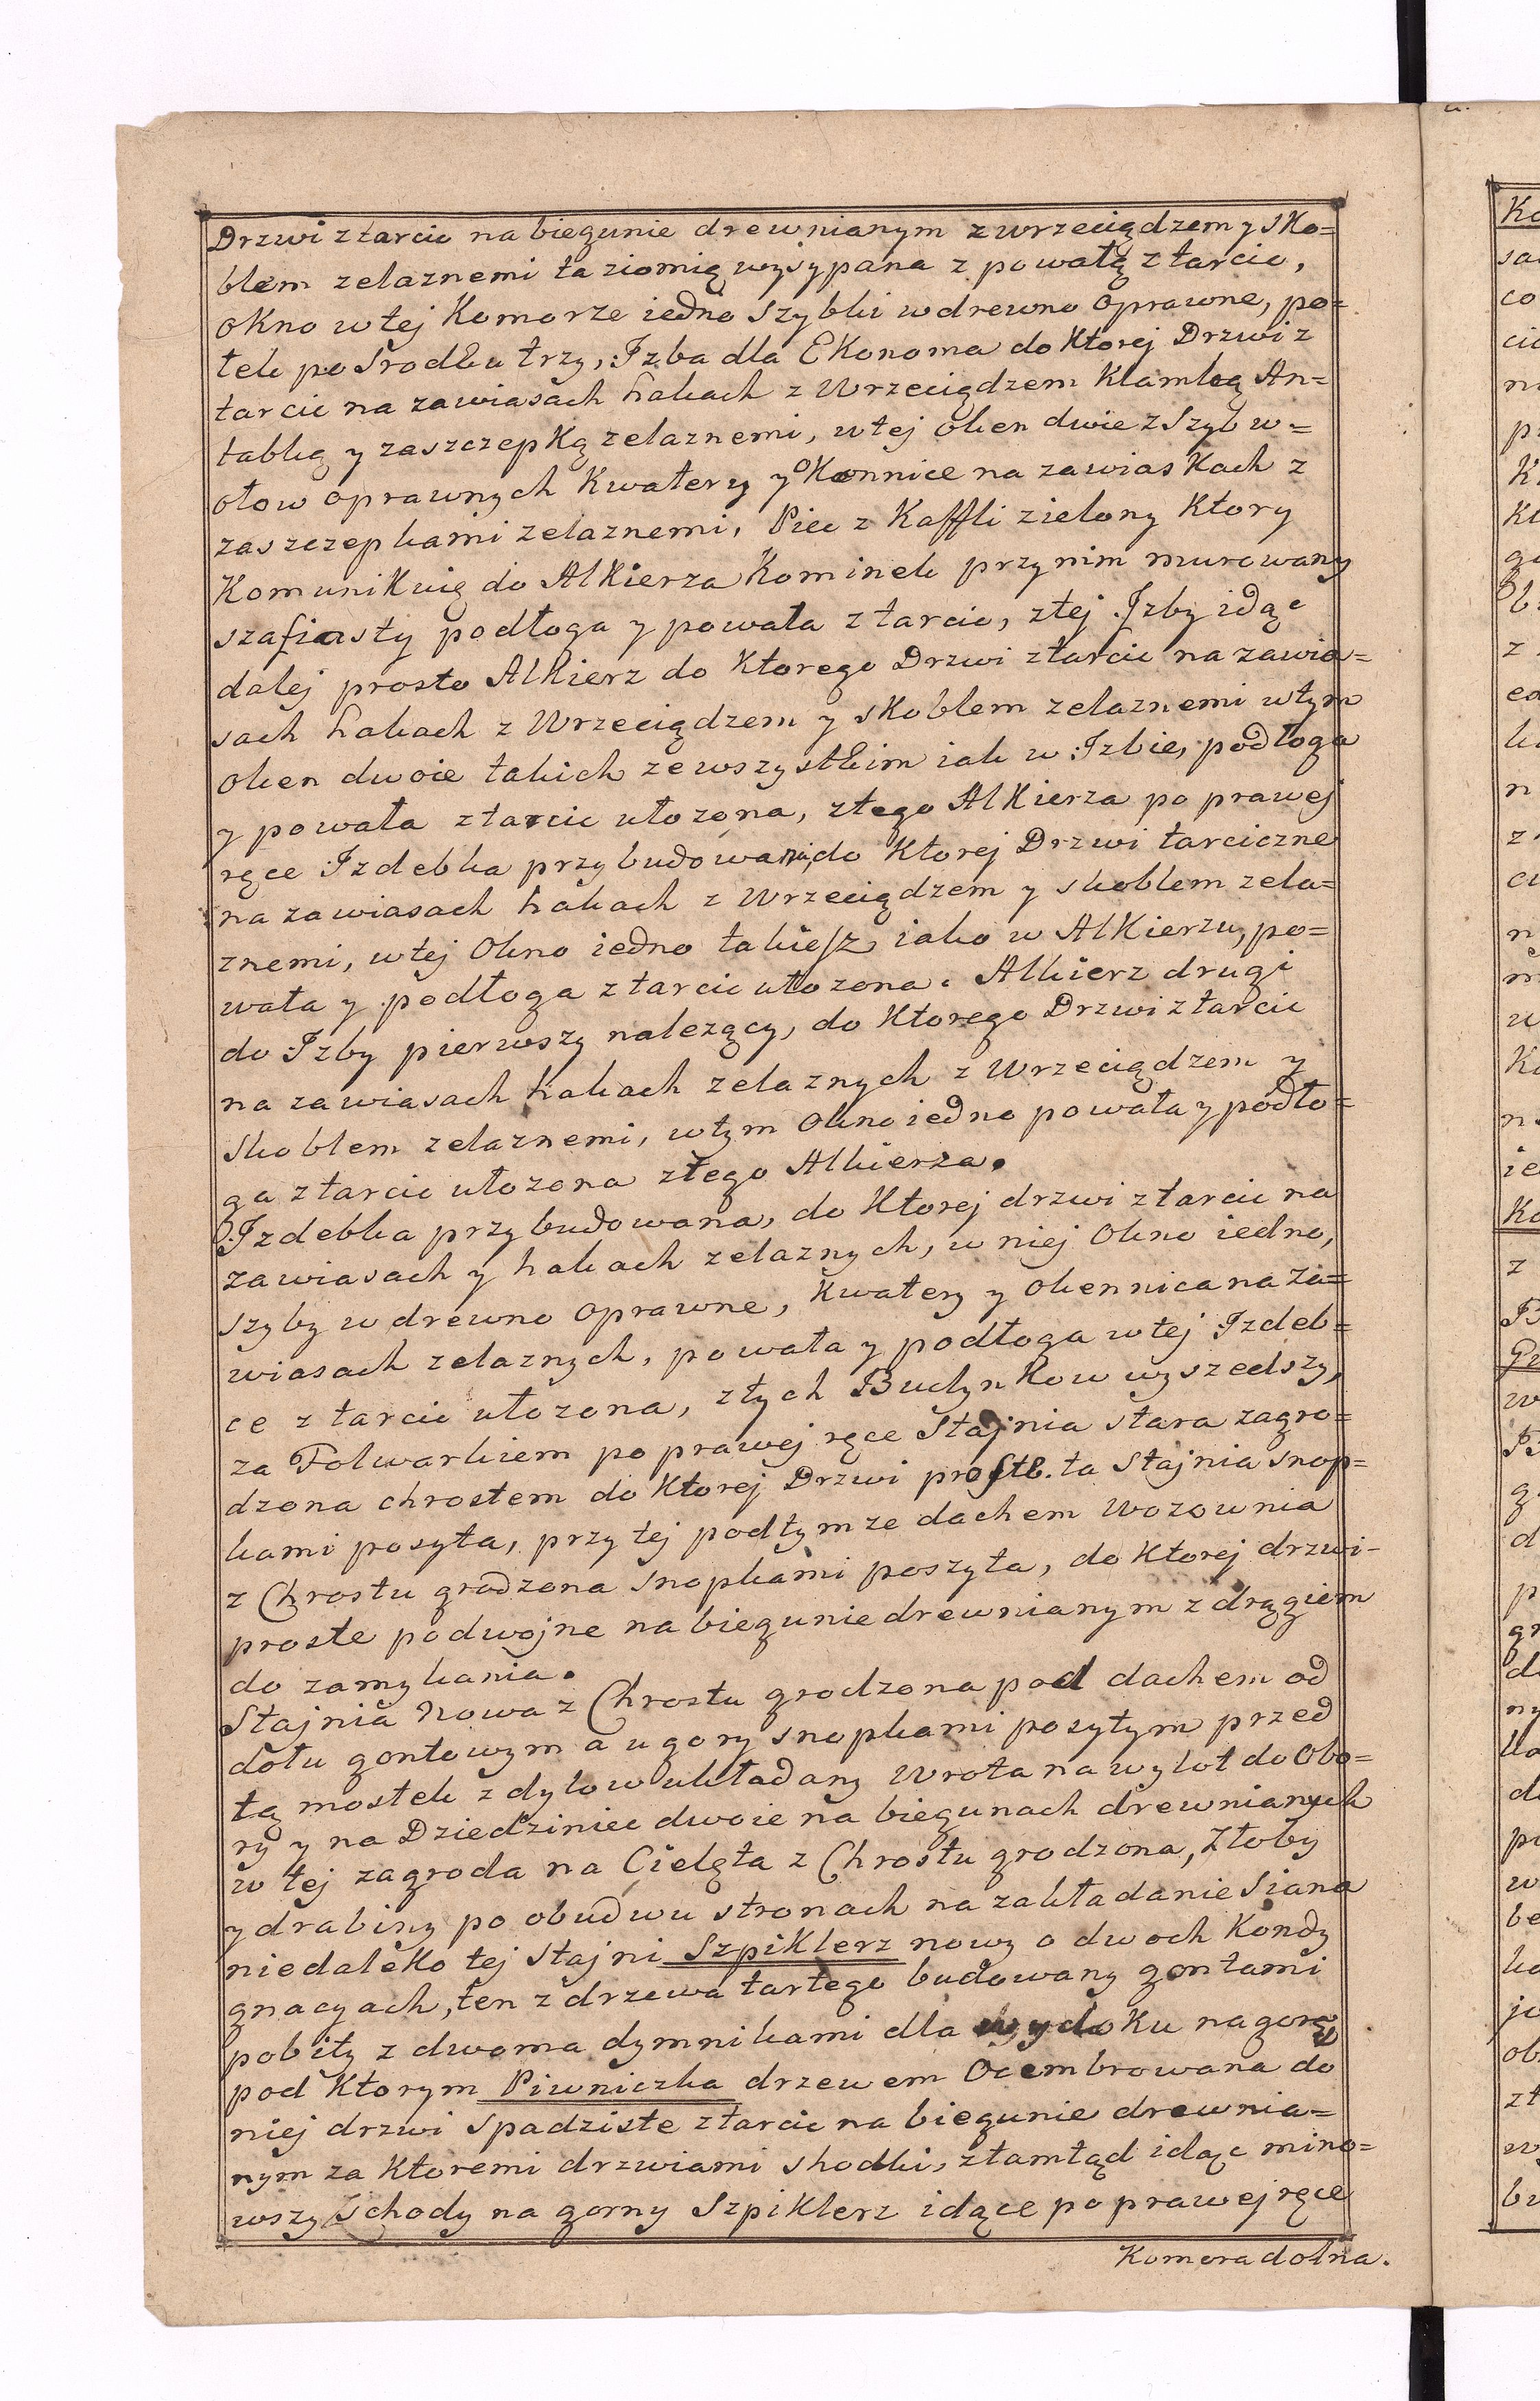 Drzwi z tarcic na biegunie drewnianym z wrzeciądzem y sko=
blem zelaznemi ta ziomią wysypana z powałą z tarcic,
okno w tej Komorze iedno szybki w drewno oprawne, po=
tek posrodku trzy, Izba dla Ekonoma do Ktorej Drzwi z
tarcic na zawiasach hakach z Wrzeciądzem Klamką An=
tabką y zaszczepką zelaznemi, w tej oken dwie z Szyb w=
ołow oprawnych Kwatery y oKennice na zawiasKach z
zaszczepkami zelaznemi, Piec z Kaffli zielony Ktory
Komunikuię do AlKierza Kominek przy nim murowany
szafiasty podłoga y powała z tarcic, z tej Izby idąc
dalej prosto AlKierz do Ktorego Drzwi z tarcic na zawia=
sach hakach z Wrzeciądzem y skoblem zelaznemi w tym
oken dwoie takich ze wszystkim iak w Izbie, podłoga
y powała z tarcic ułozona, z tego AlKierza po prawej
ręce Izdebka przybudowana, do Ktorej Drzwi tarciczne
na zawiasach hakach z Wrzeciądzem y skoblem zela=
znemi, w tej Okno iedno takiesz iako w AlKierzu, po=
wała y podłoga z tarcic ułozona. Alkierz drugi
do Izby pierwszy nalezący, do Ktorego Drzwi z tarcic
na zawiasach hakach zelaznych z Wrzeciądzem y
Skoblem zelaznemi, w tym Okno iedno powała y podło=
ga z tarcic ułozona z tego Alkierza.
Izdebka przybudowana, do Ktorej drzwi z tarcic na
zawiasach y hakach zelaznych, w niej Okno iedno,
szyby w drewno oprawne, Kwatery y okennica na za=
wiasach zelaznych, powała y podłoga w tej Izdeb=
ce z tarcic ułozona, z tych Budynkow wyszedszy,
za Folwarkiem po prawej ręce Stajnia stara zagro=
dzona chrostem do Ktorej Drzwi proste. ta Stajnia snop=
kami posyta, przy tej pod tymze dachem Wozownia
z Chrostu grodzona snopkami poszyta, do Ktorej drzwi-
proste podwojne na biegunie drewnianym z drągiem
do zamykania.
Stajnia Nowa z Chrostu grodzona pod dachem od
dołu gontowym a u gory snopkami posytym przed
tą mostek z dylow układany Wrota na wylot do Obo=
ry y na Dziedziniec dwoie na biegunach drewnianych
w tej zagroda na Cielęta z Chrostu grodzona, Złoby
y drabiny po obudwu stronach na zakładanie Siana
niedaleko tej Stajni Szpiklerz nowy o dwoch Kondy
gnacyach, ten z drzewa tartego budowany gontami
pobity z dwoma dymnikami dla wydoku na gorę
pod Ktorym Piwniczka drzewem Ocembrowana do
niej drzwi spadziste z tarcic na biegunie drewnia=
nym za Ktoremi drzwiami shodki, z tamtąd idąc mino=
wszy Schody na gorny Szpiklerz idące po prawej ręce
Komora dolna.